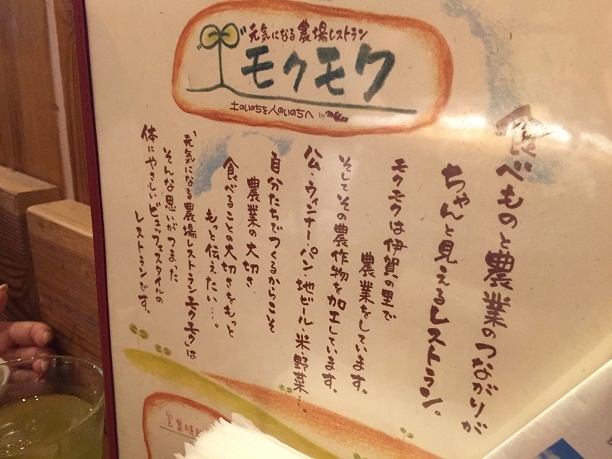 元気になる農場レストラン
モクモク
土のいのちを人のいのちへ by
食べものと農業のつながりが
ちゃんと見えるレストラン。
モクモクは伊賀の里で
農業をしています。
そしてその農作物を加工しています。
ハム・ウィンナー・パン・地ビール・米・野菜…。
自分たちでつくるからこそ
農業の大切さ
食べることの大切さをもっと
もっと伝えたい…。
"元気になる農場レストランモクモク"は
そんな思いがつまった
体にやさしいビュッフェスタイルの
レストランです。
営業時間